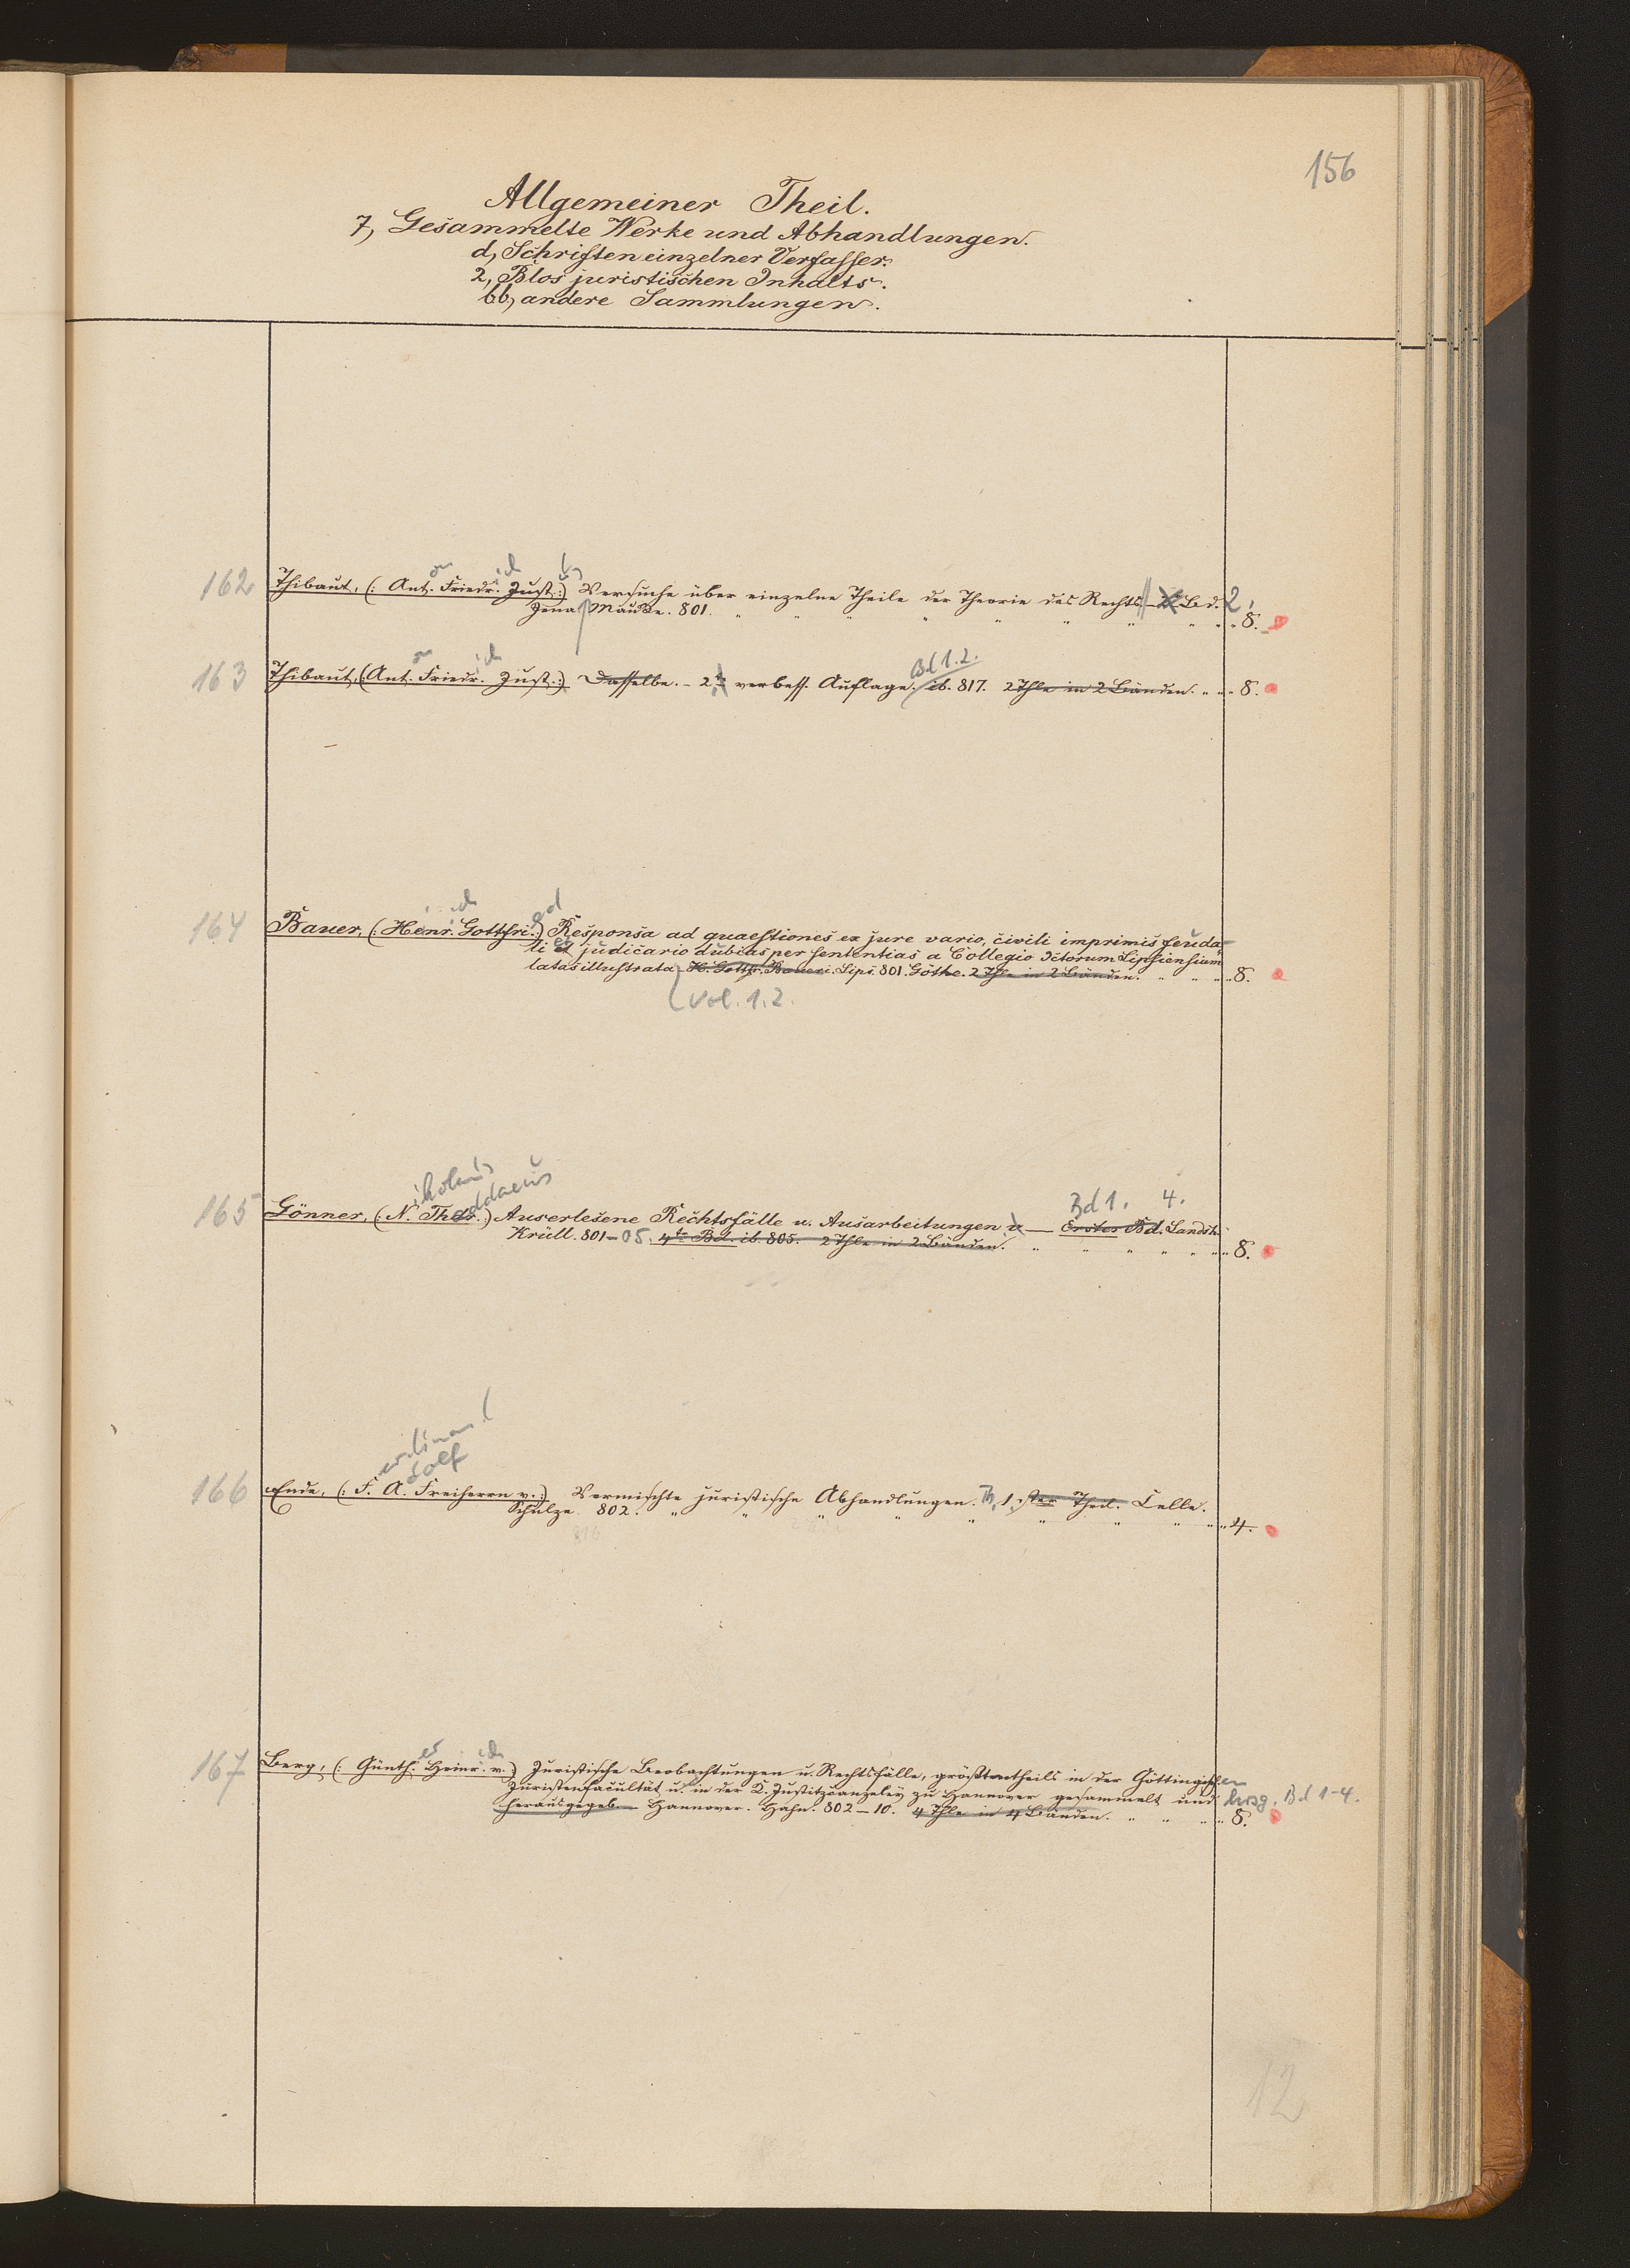 156
Allgemeiner Theil.
7, Gesammelte Werke und Abhandlungen.
d, Schriften einzelner Verfasser.
2, Blos juristischen Inhalts.
bb, andere Sammlungen.
162 Thibaut, (: Ant. Friedr. Just.:) Versuche über einzelne Theile der Theorie des Rechts Bd. 2,
Jena Mauke. 801. 8.
on ich
Bd 1.2.
163 Thibaut, (Ant. Friedr. Just.:) Dasselbe. - 2te verbess. Auflage. ib. 817. 2 Thle in 2 Bänden. 8.
ich ed
164 Bauer, (: Henr. Gottfri.:) Responsa ad quaestiones ex jure vario, civili imprimis feuda-
li et judicario dubias per sententias a Collegio Ictorum Lipsiensium
latas illustrata H. Gottfr. Baueri. Lips. 801. Göthe. 2 Thle in 2 Bänden. 8.
Vol. 1.2.
ikolaus
addaeus
Bd 1. 4.
165 Gönner, (: N. Thdr.:) Auserlesene Rechtsfälle u. Ausarbeitungen — Erster Bd. Landsh.
Krüll. 801-05. 4te Bd. ib. 805. 2 Thle in 2 Bänden. 8.
erdinand
dolf
166 Ende, (: F. A. Freiherrn v.:) Vermischte juristische Abhandlungen. Th. 1. ster Theil. Celle.
Schulze. 802. 4.
er ich
167 Berg, (: Günth. Heinr. v.:) Juristische Beobachtungen u. Rechtsfälle, grösstentheils in der Göttingischen
Juristenfacultät u. in der K. Justitzcanzeley zu Hannover gesammelt und hrsg. Bd 1-4.
herausgegeb. Hannover. Hahn. 802-10. 4 Thle in 4 Bänden. 8.
12